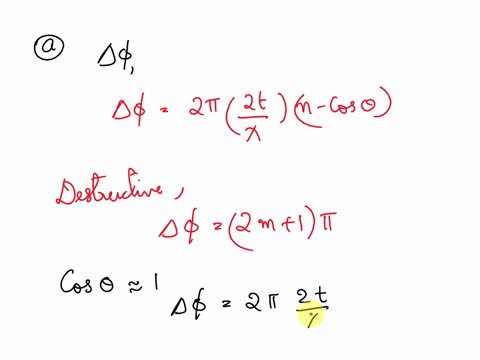 (a) Δϕ,
Δϕ = 2π (2t/λ) (n - Cosθ)
Destructive,
Δϕ = (2m+1) π
Cosθ ≈ 1 Δϕ = 2π 2t/